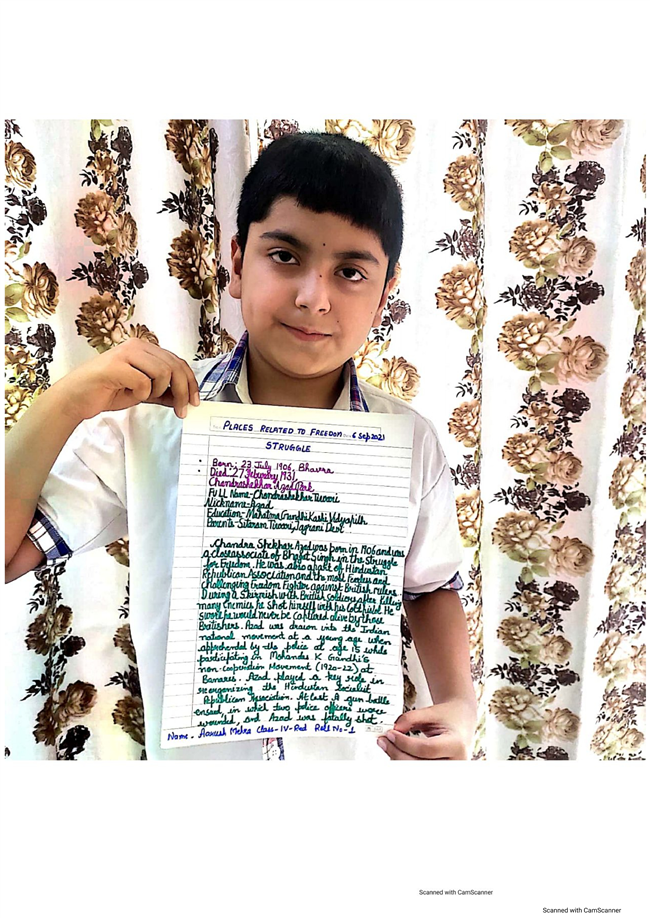 PLACES RELATED TO FREEDOM 6 Sep 2021
STRUGGLE
Born: 23 July 1906, Bhavra
Died: 27 February 1931,
Chandrashekhar Azad Park
Full Name-Chandrashekhar Tiwari
Nickname-Azad
Education-Mahatma Gandhi Kashi Vidyapith
Parents-Sitaram Tiwari, Jagrani Devi
Chandra Shekhar Azad was born in 1906 and was
a close associate of Bhagat Singh in the Struggle
for freedom. He was also a part of Hindustan
Republican Association and the most fearless and
challenging freedom fighter against British rulers.
During a Skirmish with British soldiers after killing
many enemies, he Shot himself with his Colt pistol. He
swore he would never be captured alive by those
Britishers. Azad was drawn into the Indian
national movement at a young age when
apprehended by the police at age 15 while
participating in Mohandas K Gandhi's
non-cooperation Movement (1920-22) at
Banares. Azad played a key role in
reorganizing the Hindustan Socialist
Republican Association. At last A gun battle
ensued, in which two police officers were
wounded, and Azad was fatally shot.
Name. Aarush Mehra Class-IV-Red Roll No-1
Scanned with CamScanner
Scanned with CamScanner